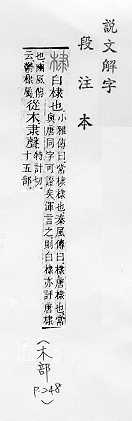 說文解字
段注本
棣
白棣也
小雅傳曰常棣棣也秦風傳曰棣唐棣也常
與唐同字可證矣渾言之則白棣亦評唐棣
也豳風傳
云鬱棣屬
從木隶聲
特計切
十五部
(木部
P.248)